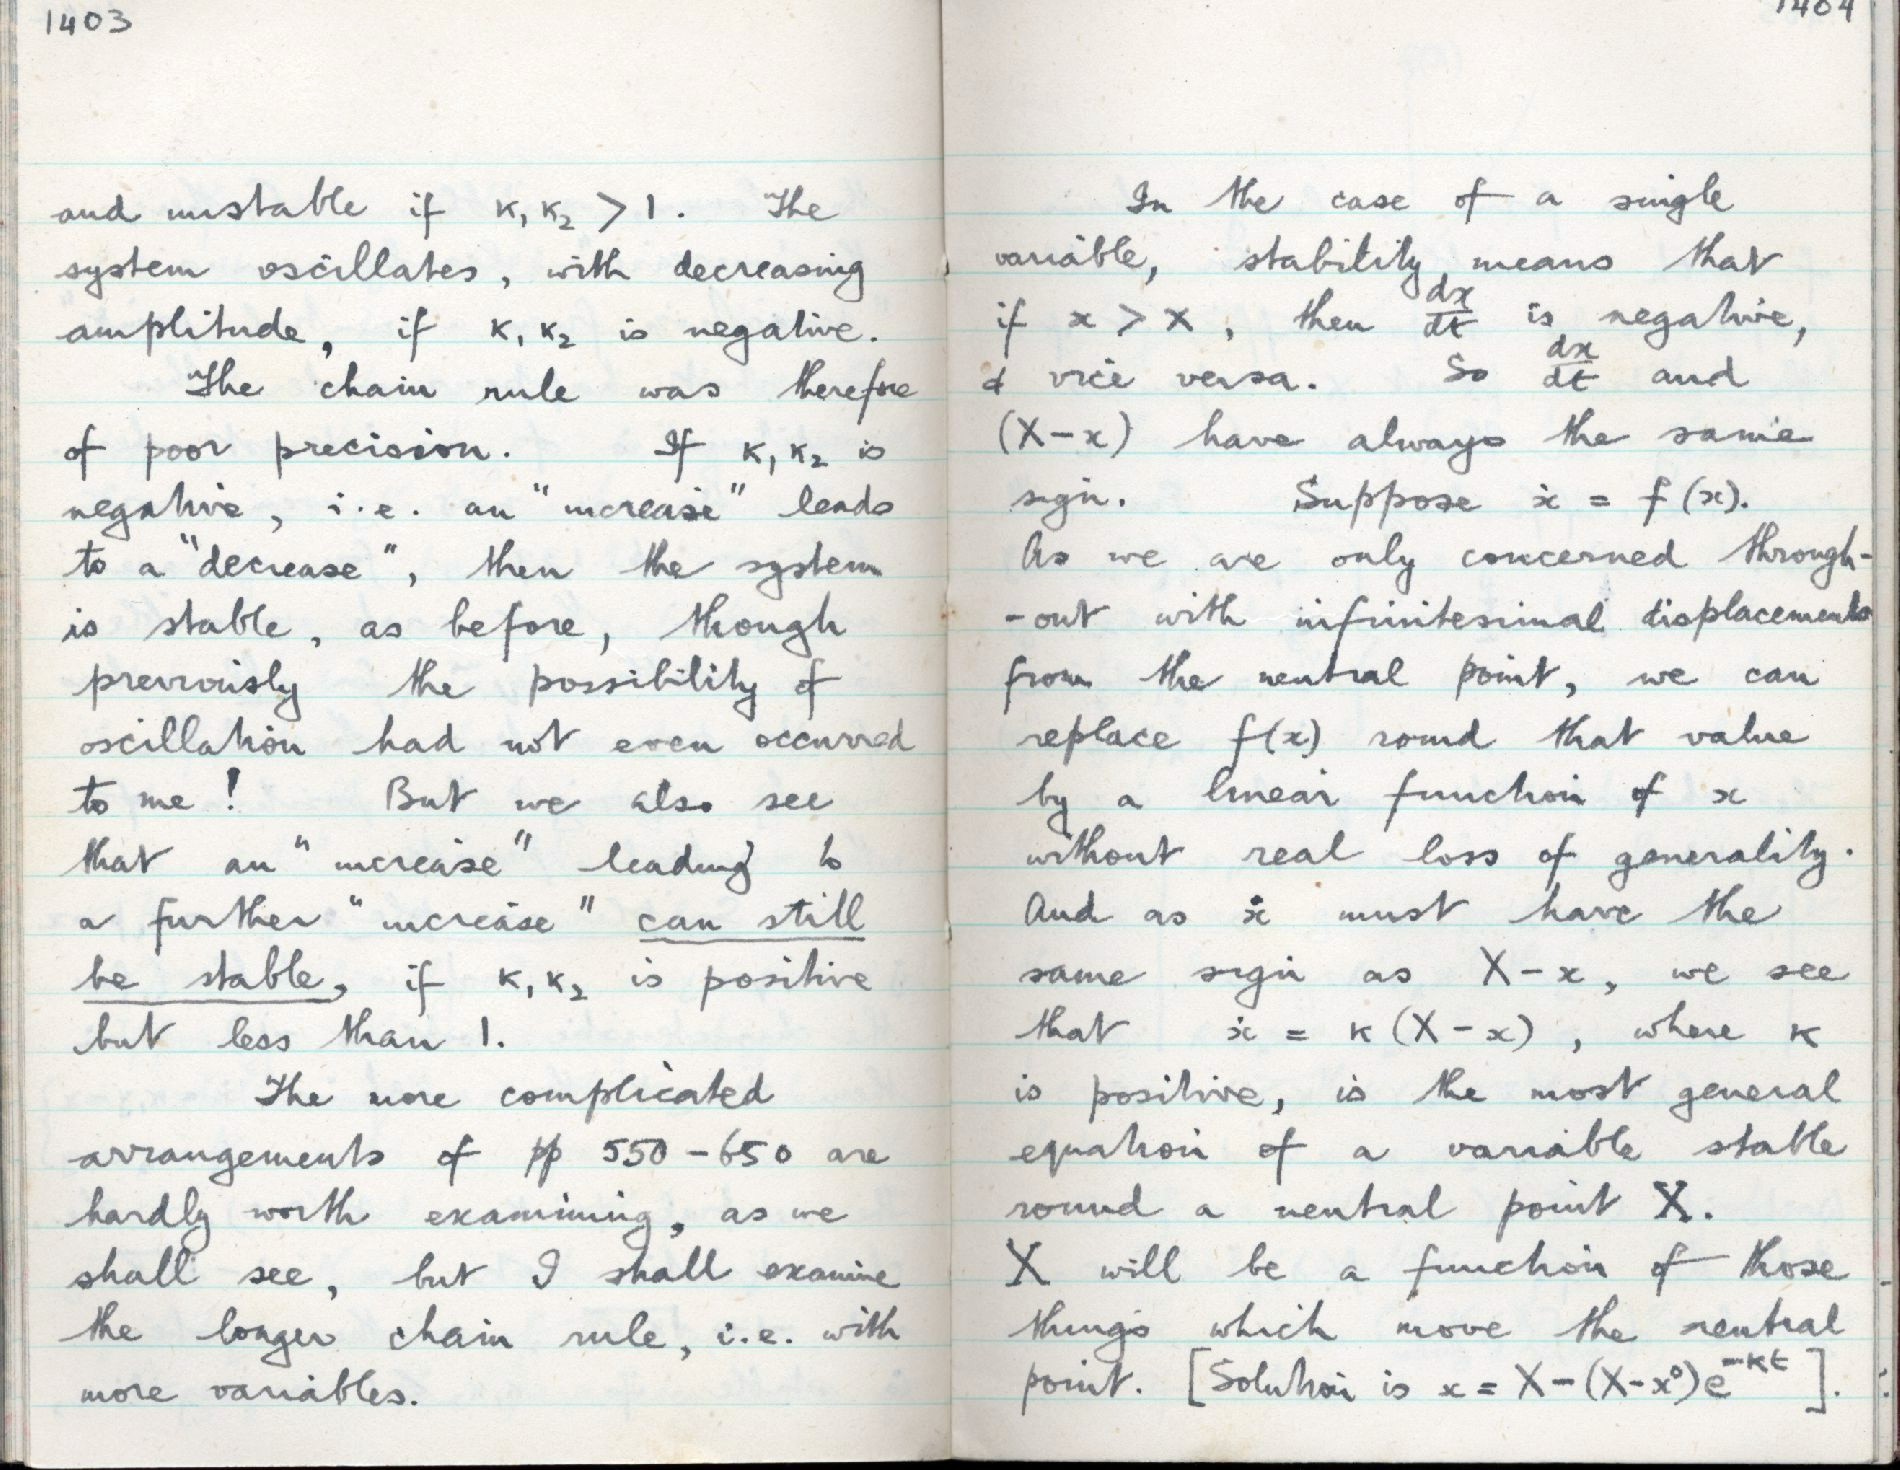 1403
and unstable if κ₁κ₂ > 1. The
system oscillates, with decreasing
amplitude, if κ₁κ₂ is negative.
The chain rule was therefore
of poor precision. If κ₁κ₂ is
negative, i.e. an "increase" leads
to a "decrease", then the system
is stable, as before, though
previously the possibility of
oscillation had not even occurred
to me! But we also see
that an "increase" leading to
a further "increase" can still
be stable, if κ₁κ₂ is positive
but less than 1.
The more complicated
arrangements of pp 550-650 are
hardly worth examining, as we
shall see, but I shall examine
the longer chain rule, i.e. with
more variables.
1404
In the case of a single
variable, stability means that
if x > X, then dx/dt is negative,
& vice versa. So dx/dt and
(X-x) have always the same
sign. Suppose ẋ = f(x).
As we are only concerned through-
-out with infinitesimal displacements
from the neutral point, we can
replace f(x) round that value
by a linear function of x
without real loss of generality.
And as ẋ must have the
same sign as X-x, we see
that ẋ = κ(X-x), where κ
is positive, is the most general
equation of a variable stable
round a neutral point X.
X will be a function of those
things which move the neutral
point. [Solution is x = X-(X-x⁰)e^{-κt}].